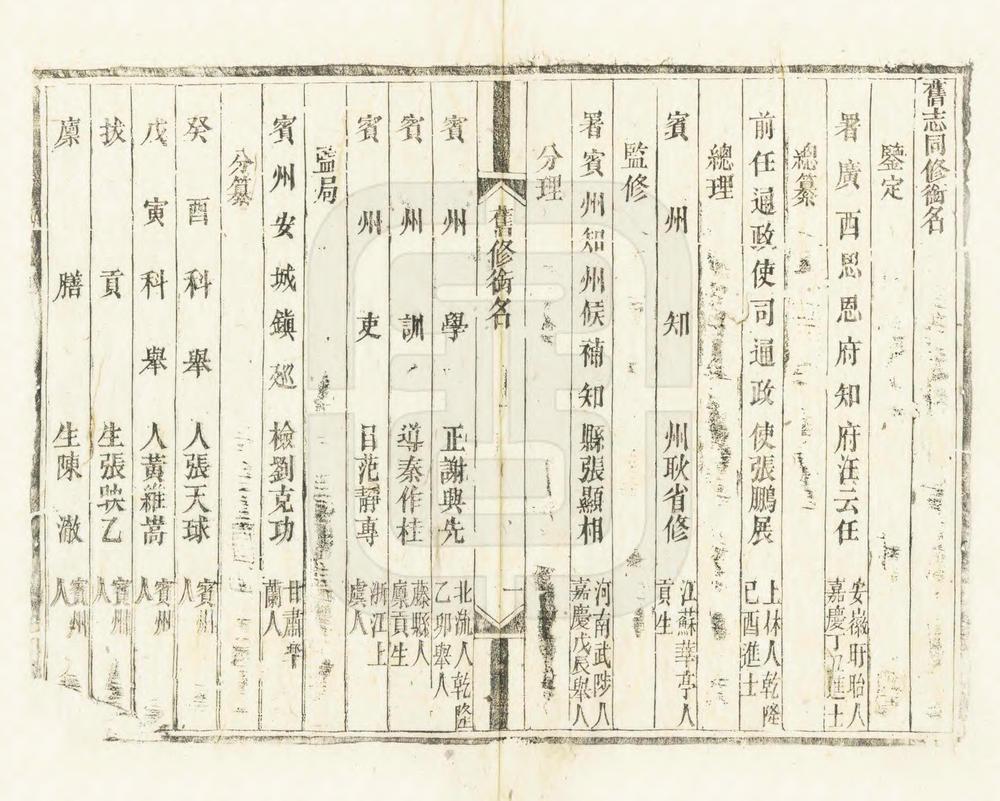 舊志同修銜名
鑒定
署廣西思恩府知府汪云任 安徽盱眙人嘉慶丁丑進士
總纂
前任通政使司通政使張鵬展 上林人乾隆己酉進士
總理
賓州知州耿省修 江蘇華亭人貢生
監修
署賓州知州候補知縣張顯相 河南武陟人嘉慶戊辰舉人
分理
舊修銜名 一
賓州學正謝興先 北流人乾隆乙卯舉人
賓州訓導秦作桂 藤縣人廩貢生
賓州吏目范靜專 浙江上虞人
監局
賓州安城鎮廵檢劉克功 甘肅臯蘭人
分纂
癸酉科舉人張天球 賓州人
戊寅科舉人黃維嵩 賓州人
拔貢生張映乙 賓州人
廩膳生陳澈 賓州人